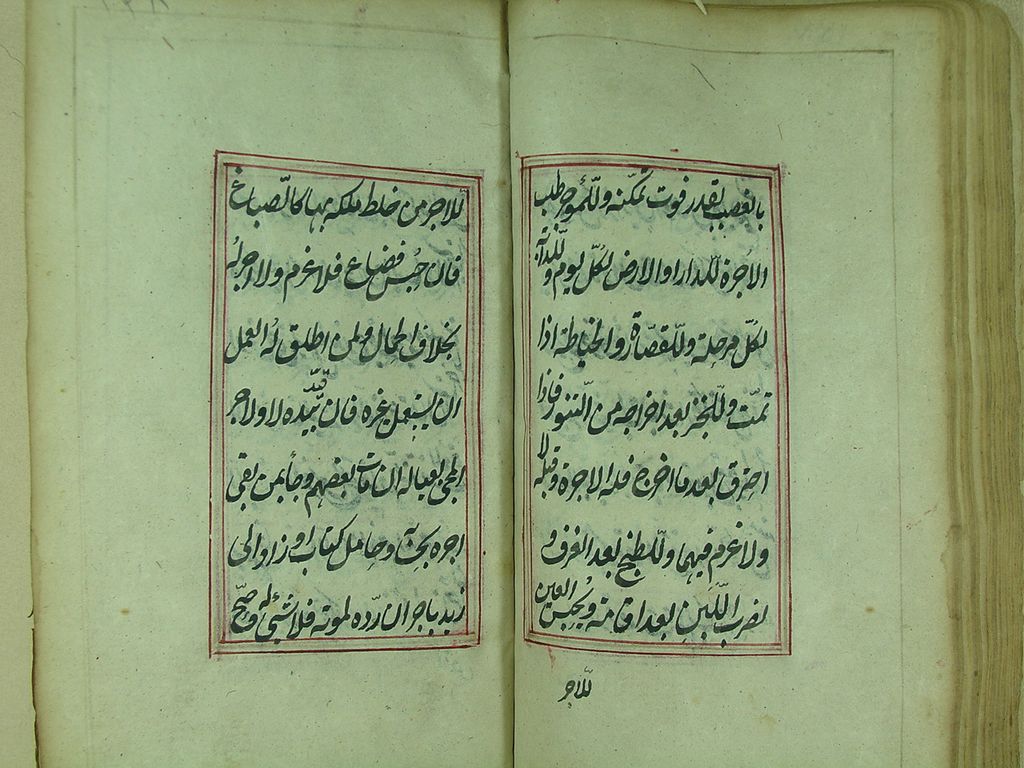 بالغصب بقدر فوت تمكنه وللموجر طلب
الاجرة للدار او الارض لكل يوم وللدابة
لكل مرحلة وللقصارة والخياطة اذا
تمت وللخبز بعد اخراجه من التنور فاذا
احترق بعد ما اخرج فله الاجرة وقبله لا
ولا غرم فيهما وللطبخ بعد الغرف و
لضرب اللبن بعد اقامته ويحبس العين
للاجر
للاجر من خلط ملكه بها كالصباغ
فان حبس فضاع فلا غرم ولا اجر له
بخلاف الحمال ولمن اطلق له العمل
ان يستعمل غيره فان قيد بيده لا ولاجر
المجئ بعياله ان مات بعضهم وجاء بمن بقي
اجره بحسابه وحامل كتاب او زاد الى
زيد باجر ان رده لموته فلا شئ له وصح